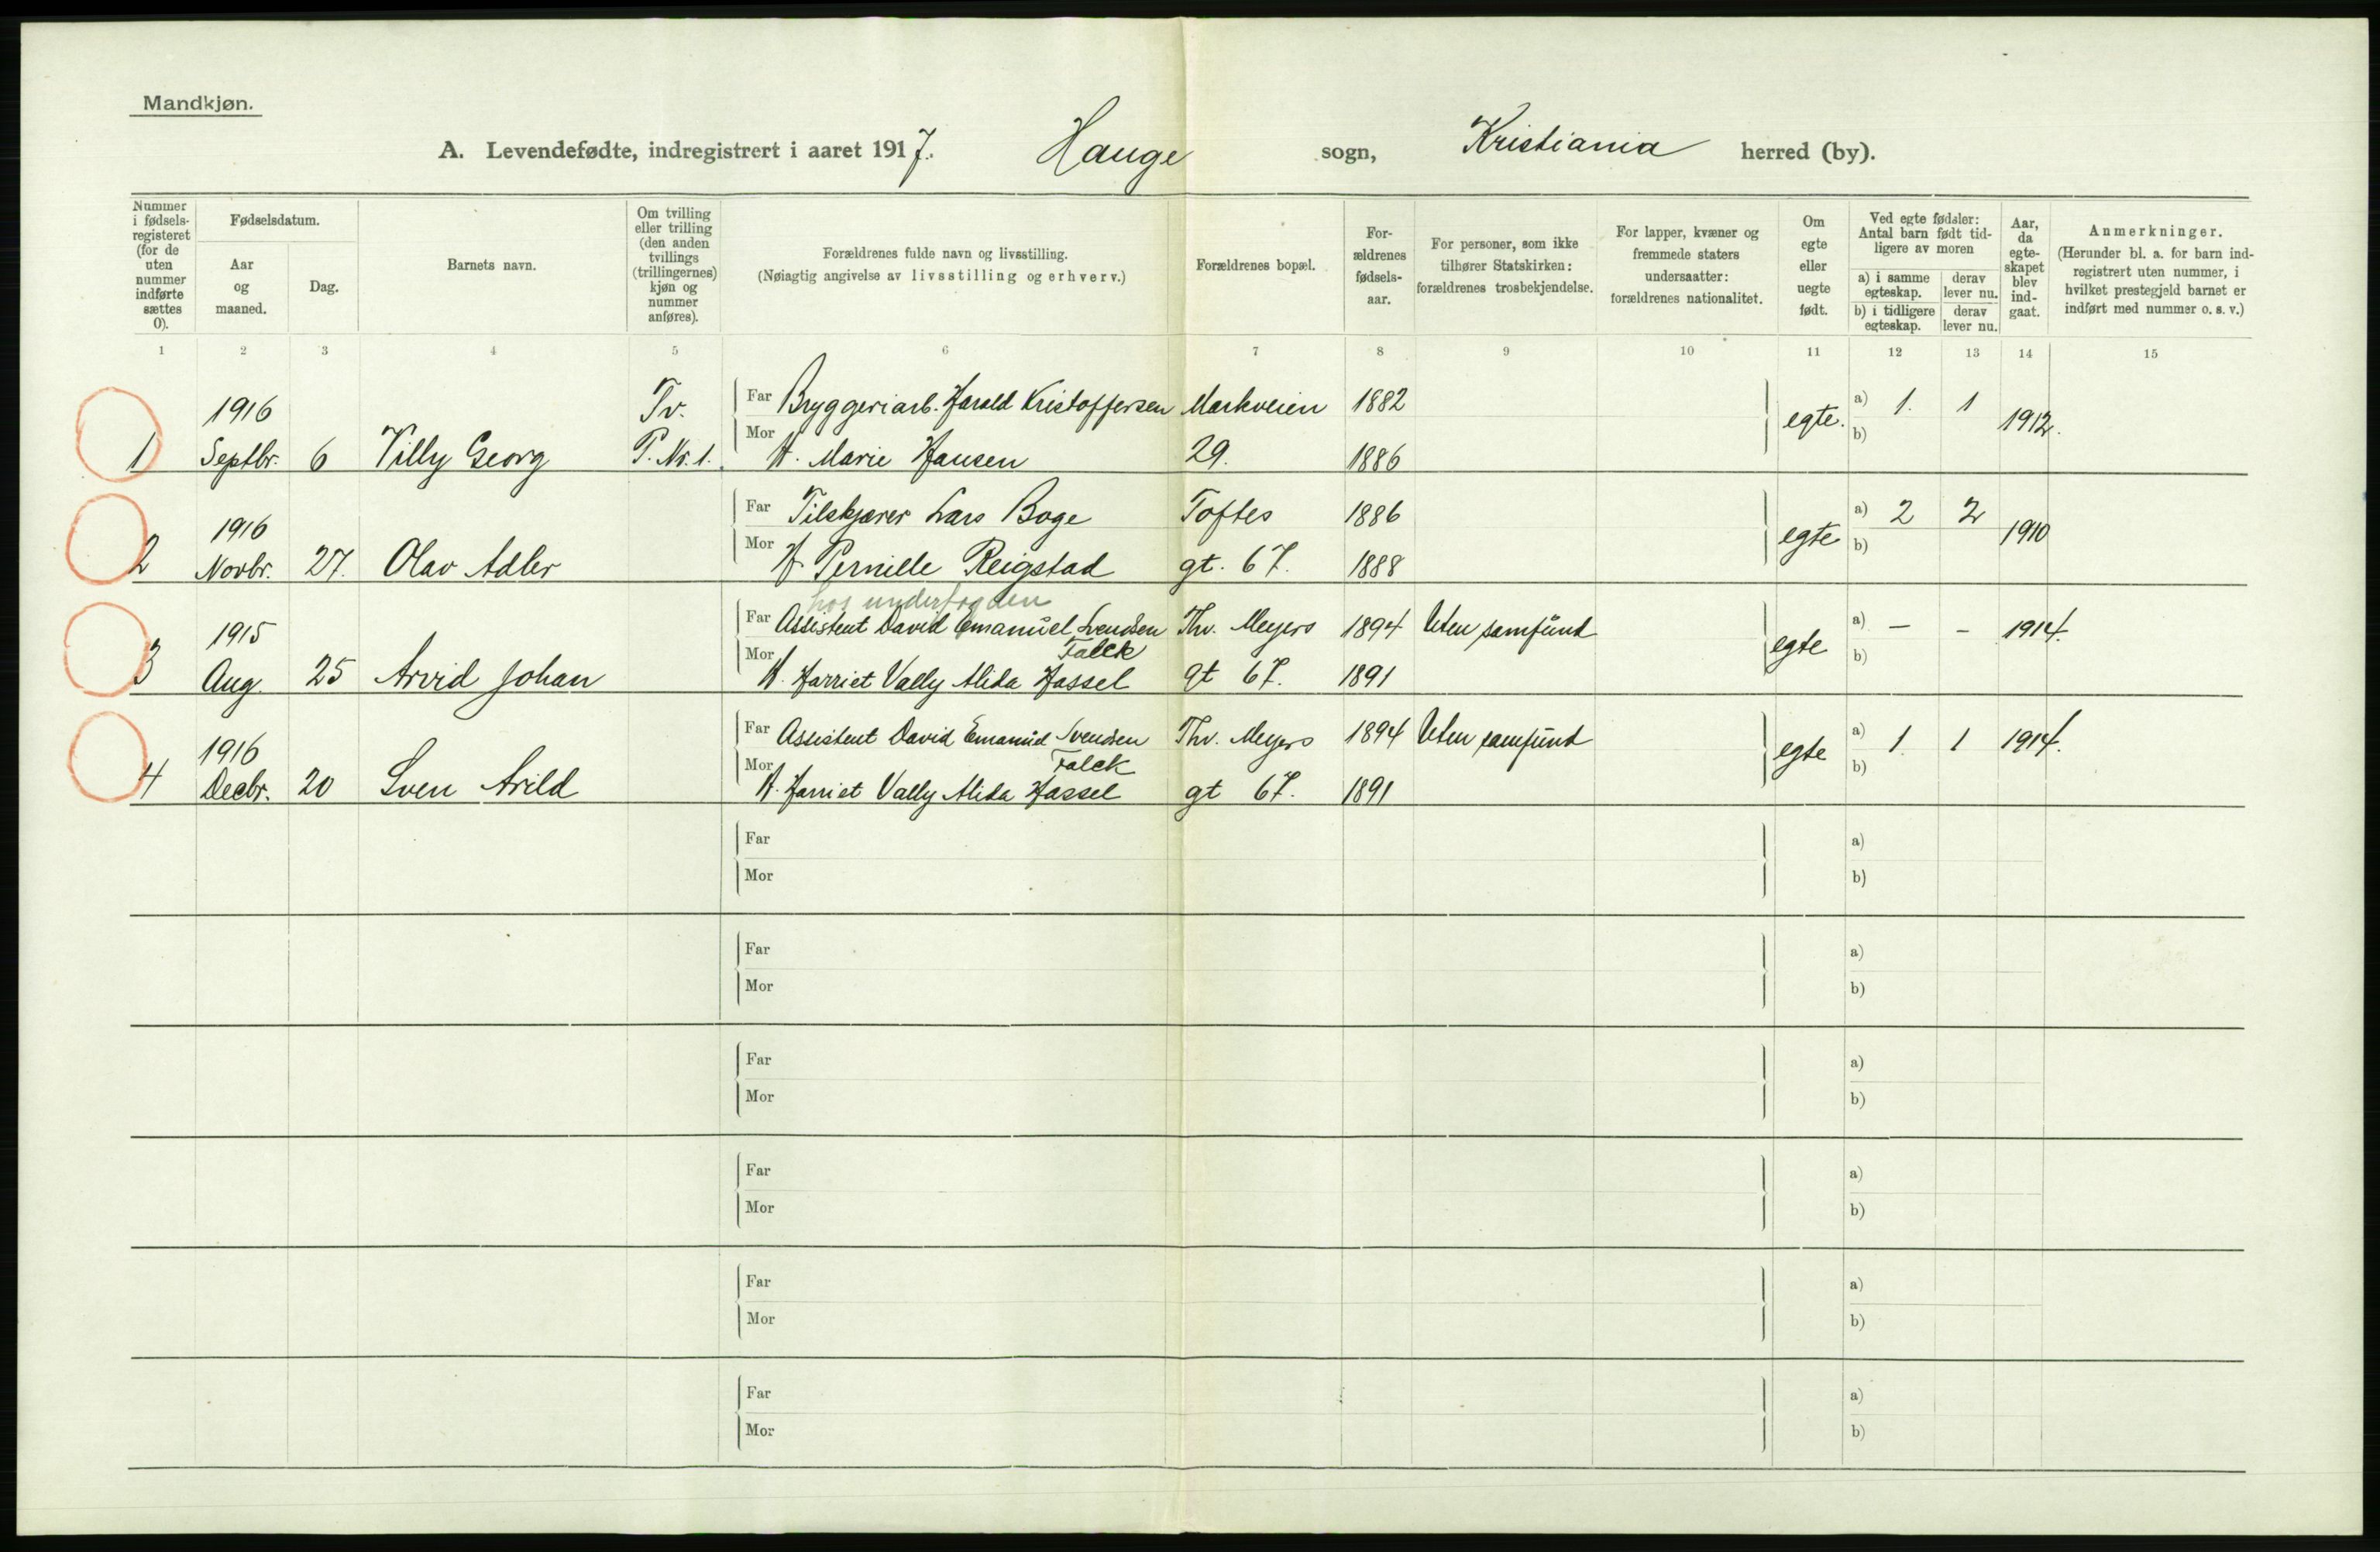 Mandkjøn.
A. Levendefødte, indregistrert i aaret 1917. Hauge sogn, Kristiania herred (by).
Nummer i fødsels-registeret (for de uten nummer indførte sættes 0).
Fødselsdatum.
Aar og maaned.
Dag.
Barnets navn.
Om tvilling eller trilling (den anden tvillings (trillingernes) kjøn og nummer anføres).
Forældrenes fulde navn og livsstilling.
(Nøiagtig angivelse av livsstilling og erhverv.)
Forældrenes bopæl.
For-ældrenes fødsels-aar.
For personer, som ikke tilhører Statskirken: forældrenes trosbekjendelse.
For lapper, kvæner og fremmede staters undersaatter: forældrenes nationalitet.
Om egte eller uegte født.
Ved egte fødsler: Antal barn født tid-ligere av moren
a) i samme egteskap.
derav lever nu.
b) i tidligere egteskap.
derav lever nu.
Aar, da egte-skapet blev ind-gaat.
Anmerkninger.
(Herunder bl. a. for barn ind-registrert uten nummer, i hvilket prestegjeld barnet er indført med nummer o. s. v.)
1 2 3 4 5 6 7 8 9 10 11 12 13 14 15
1916 Tv. Far Bryggeriarb. Harald Kristoffersen Markveien 1882 egte. a) 1. 1 1912.
1 Septbr. 6 Villy Georg P. Nr. 1. Mor H. Marie Hansen 29. 1886 b)
1916 Far Tilskjærer Lars Boge Toftes 1886 egte a) 2 2 1910
2 Novbr. 27. Olav Adler Mor H. Pernille Reigstad gt. 67. 1888 b)
hos underfogden
1915 Far Assistent David Emanuel Svendsen Thv. Meyers 1894 Uten samfund egte a) — - 1914.
Falck
3 Aug. 25 Arvid Johan Mor H. Harriet Vally Alida Hassel gt 67. 1891 b)
1916 Far Assistent David Emanuel Svendsen Thv. Meyers 1894 Uten samfund egte a) 1 1 1914.
Falck
4 Decbr. 20 Sven Arild Mor H. Harriet Vally Alida Hassel gt 67. 1891 b)
Far a)
Mor b)
Far a)
Mor b)
Far a)
Mor b)
Far a)
Mor b)
Far a)
Mor b)
Far a)
Mor b)